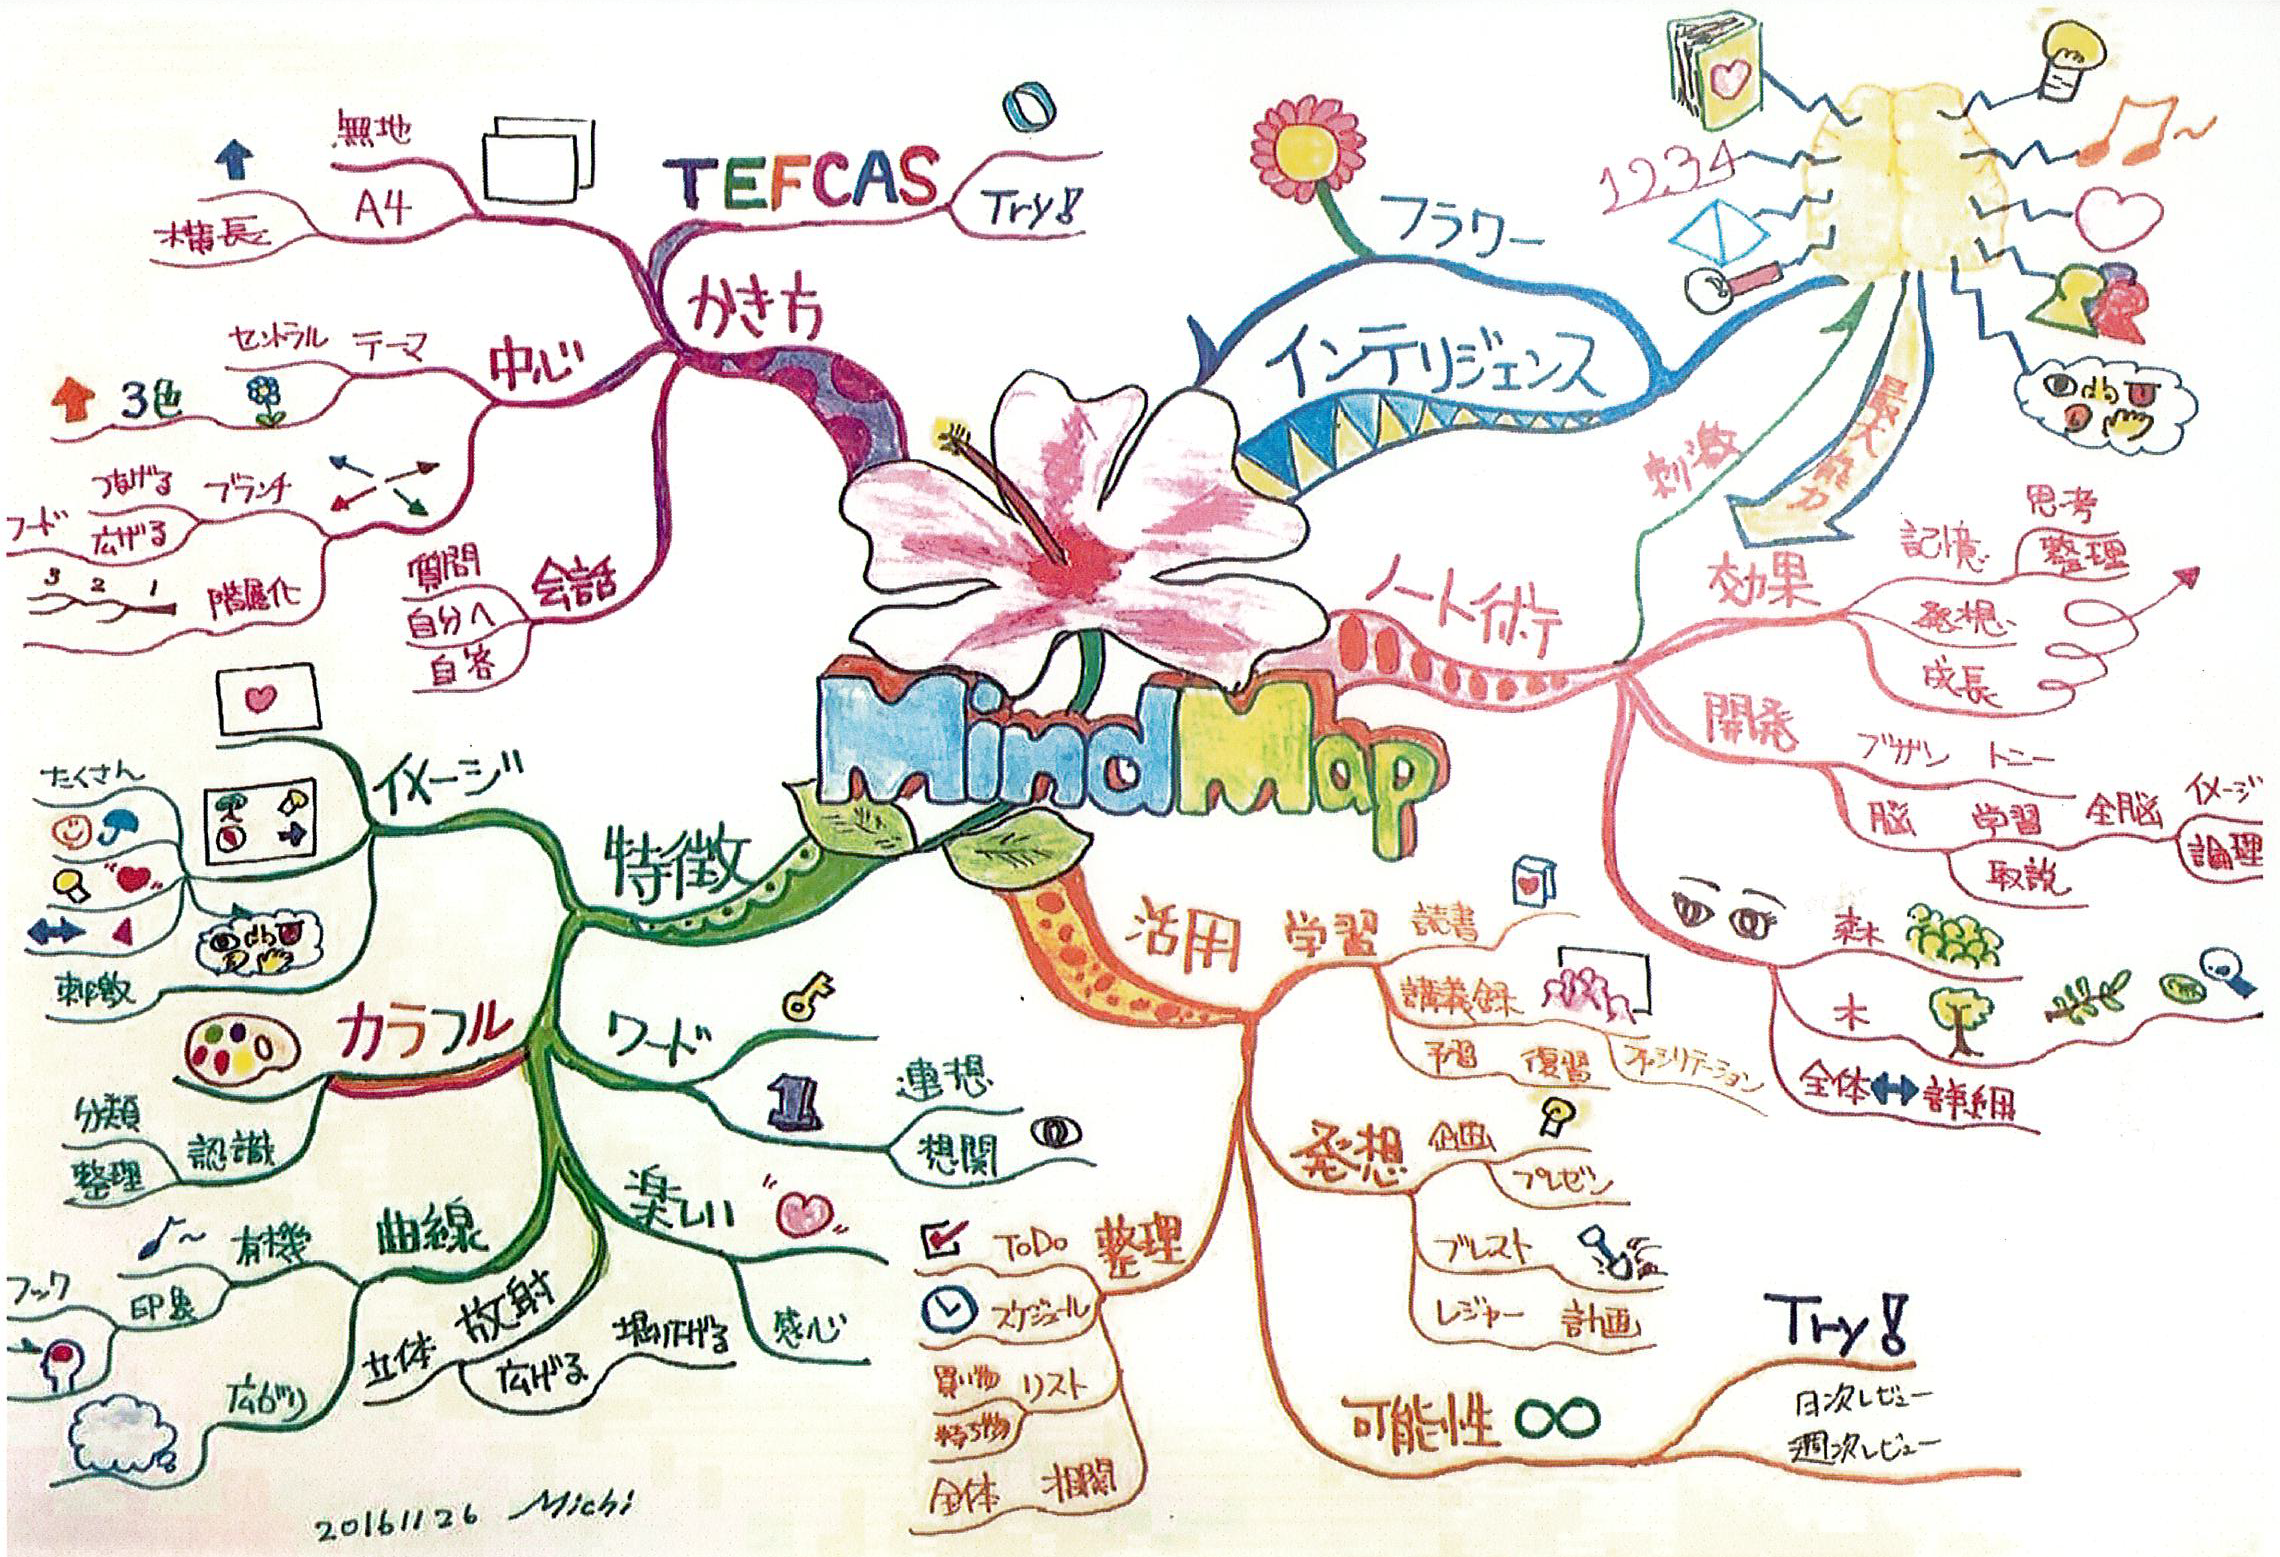 MindMap
インテリジェンス
フラワー
1234
最大
能力
ノート術
刺激
効果
記憶
思考
整理
発想
成長
開発
ブザン トニー
脳 学習 全脳
イメージ
論理
取説
森
木
全体 詳細
活用
学習
読書
講義録
予習 復習
発想
企画
プレゼン
ブレスト
レジャー 計画
可能性 ∞
Try!
日次レビュー
週次レビュー
整理
ToDo
スケジュール
買い物 リスト
全体 相関
特徴
イメージ
たくさん
刺激
カラフル
認識
分類
整理
曲線
有機
印象
フック
広がり
放射
立体
広げる
掘り下げる
楽しい
感心
ワード
1
連想
想関
かき方
TEFCAS
Try!
無地
A4
横長
中心
テーマ
セントラル
3色
ブランチ
つなげる
広げる
階層化
3 2 1
会話
質問
自分へ
自答
20161126 Michi